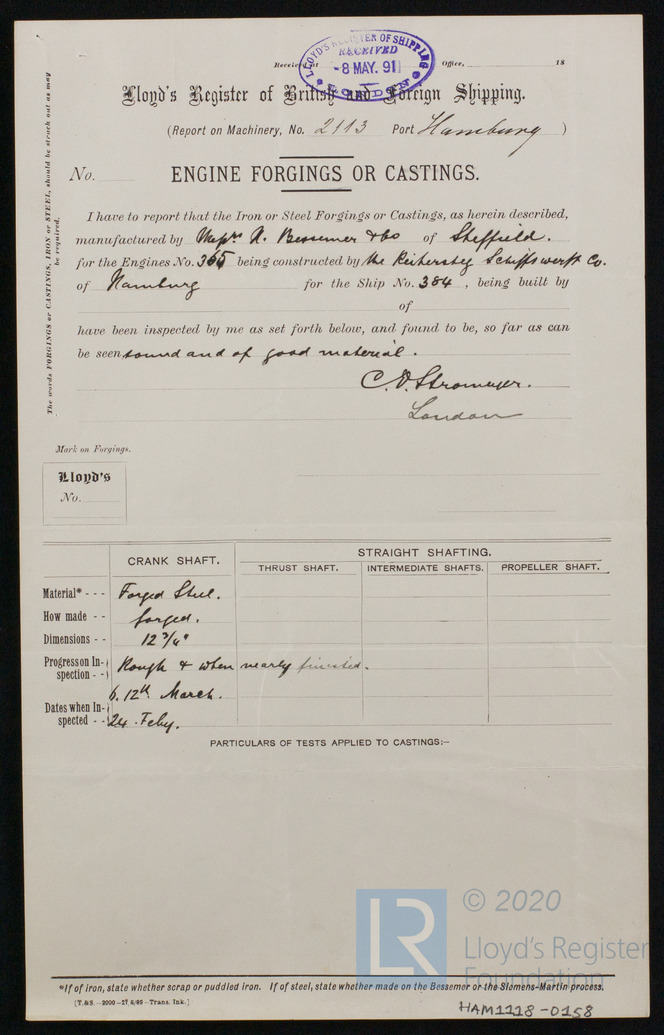 Received at Office, 18
LLOYD'S REGISTER OF SHIPPING
RECEIVED
-8 MAY. 91
LONDON
Lloyd's Register of British and Foreign Shipping.
(Report on Machinery, No. 2113 Port Hamburg )
No. ENGINE FORGINGS OR CASTINGS.
The words FORGINGS or CASTINGS, IRON or STEEL, should be struck out as may
be required.
I have to report that the Iron or Steel Forgings or Castings, as herein described,
manufactured by Messrs H. Bessemer & Co of Sheffield.
for the Engines No. 365 being constructed by the Reiherstieg Schiffswerft Co.
of Hamburg for the Ship No. 384 , being built by
of
have been inspected by me as set forth below, and found to be, so far as can
be seen sound and of good material.
C. E. Stromeyer.
London
Mark on Forgings.
Lloyd's
No.
CRANK SHAFT. STRAIGHT SHAFTING.
THRUST SHAFT. INTERMEDIATE SHAFTS. PROPELLER SHAFT.
Material* - - - Forged Steel.
How made - - forged.
Dimensions - - 12 3/4"
Progress on In-
spection - - Rough & when nearly finished.
6. 12th March.
Dates when In-
spected - - 24 Feby.
PARTICULARS OF TESTS APPLIED TO CASTINGS:—
© 2020
LR
Lloyd's Register
Foundation
*If of iron, state whether scrap or puddled iron. If of steel, state whether made on the Bessemer or the Siemens-Martin process.
[T.&S.—2000—27,6/89—Trans. Ink.]
HAM1118-0158